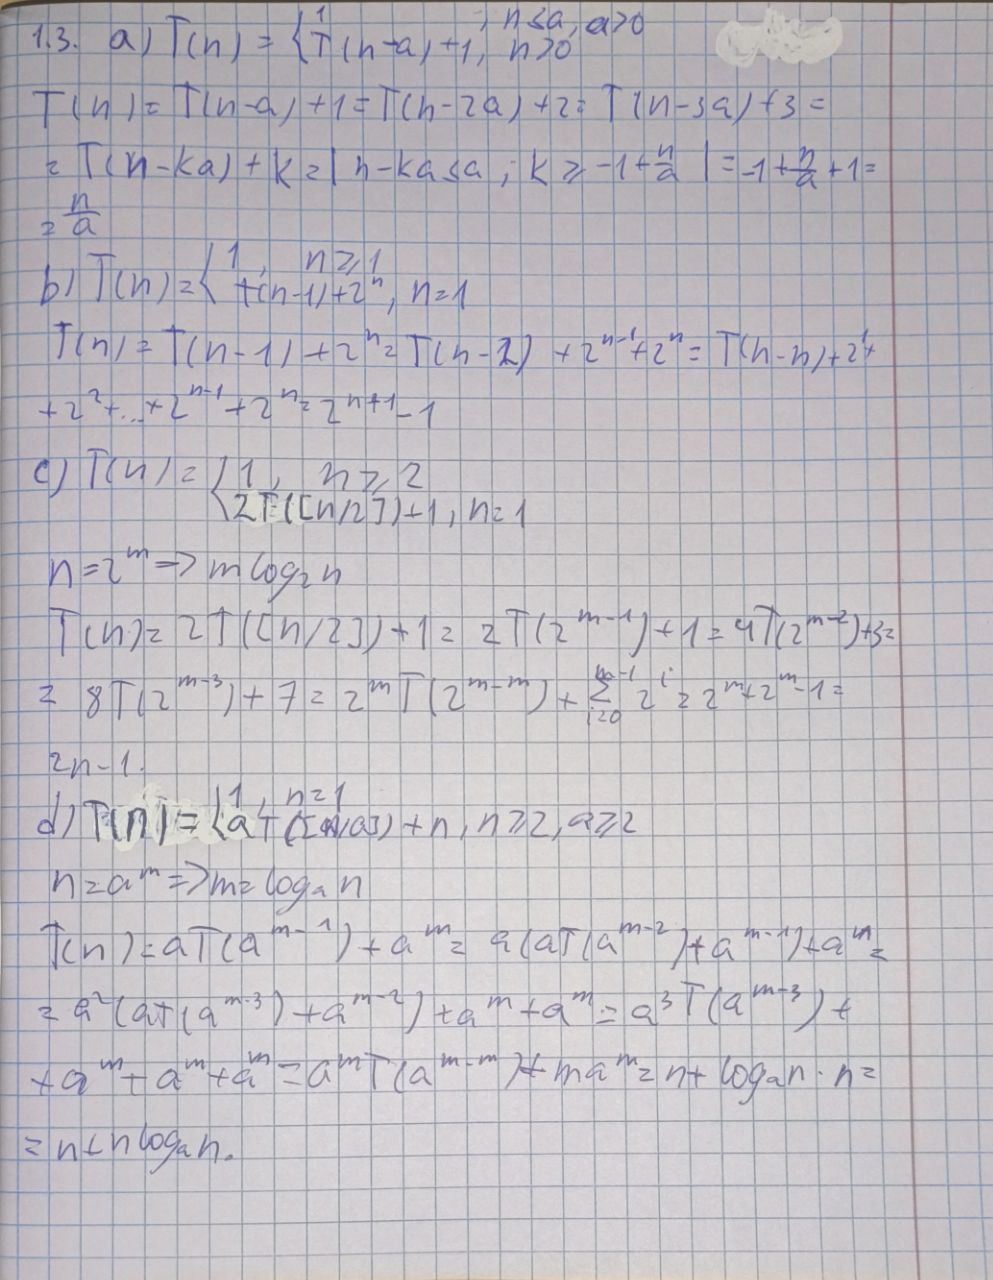 1.3. a) T(n) = { 1 , n ≤ a, a>0
T(n-a)+1, n>0
T(n) = T(n-a)+1 = T(n-2a)+2 = T(n-3a)+3 =
= T(n-ka)+k = | n-ka≤a ; k ≥ -1+n/a | = -1+n/a+1 =
= n/a
b) T(n) = { 1 , n ≥ 1
T(n-1)+2^n, n=1
T(n) = T(n-1)+2^n = T(n-2)+2^{n-1}+2^n = T(n-n)+2^1+
+2^2+...+2^{n-1}+2^n = 2^{n+1}-1
c) T(n) = { 1 , n ≥ 2
2T([n/2])+1, n=1
n=2^m => m log₂n
T(n) = 2T([n/2])+1 = 2T(2^{m-1})+1 = 4T(2^{m-2})+3 =
= 8T(2^{m-3})+7 = 2^m T(2^{m-m}) + Σ_{i=0}^{m-1} 2^i = 2^m+2^m-1 =
2n-1.
d) T(n) = { 1 , n=1
aT([n/a])+n, n≥2, a≥2
n=a^m => m=logₐn
T(n)=aT(a^{m-1})+a^m = a(aT(a^{m-2})+a^{m-1})+a^m =
= a^2(aT(a^{m-3})+a^{m-2})+a^m+a^m = a^3T(a^{m-3})+
+a^m+a^m+a^m = a^mT(a^{m-m})+ma^m = n+logₐn·n =
= n+n logₐn.